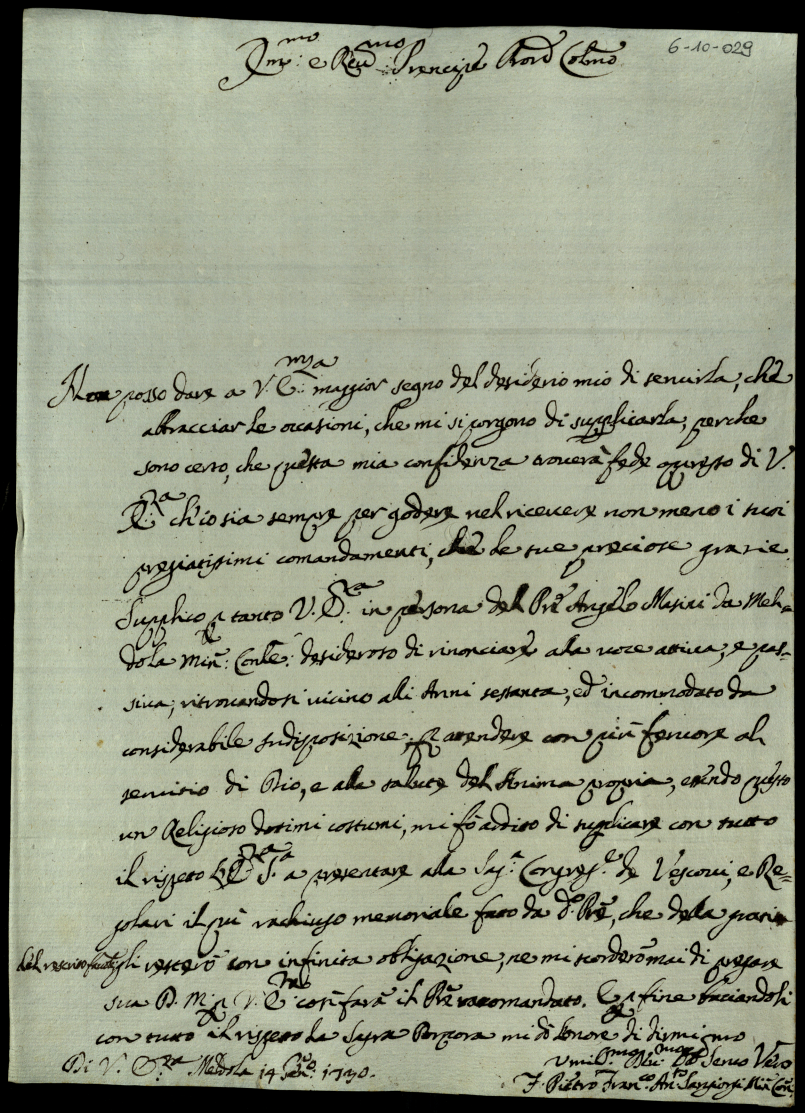 6-10-029
Em:mo e Reu:mo Prencipe Pron̄ Colmo
Non posso dare a V. E:mza maggior segno del desiderio mio di seruirla, che
abbracciar le occasioni, che mi si porgono di supplicarla, perche
sono certo, che questa mia confidenza trouerà fede appresso di V.
E:nza ch'io sia sempre per godere nel riceuere non meno i suoi
pregiatissimi comandamenti, che le sue preciose grazie.
Supplico p tanto V. E:nza in persona del Pre Angelo Masini da Mel=
dola Min: Conle: desideroso di rinonciare alla uoce attiua, e pas=
siua, ritrouandosi uicino alli Anni sessanta, ed incommodato da
considerabile indisposizione, p attendere con più feruore al
seruitio di Dio, e alla salute dell Anima propria, essendo questo
un Religioso dotimi costumi, mi fò ardito di suplicare con tutto
il rispetto a presentare alla Sag:a Congreg:e de Vescoui, e Re=
golari il quì rachiuso memoriale fatto da do Pre, che della grazia
del rescrito gli resterò con infinita obligazione, ne mi scorderò mai di pregare
sua D. M. p V. E:nza così farà il Pre racomandato. E p fine baciandoli
con tutto il rispetto la Sagra Porpora mi dò l'onore di dirmi
Di V. E:nza Meldola 14 1730.
Umil:mo Deu:mo Obl Seruo Vero
F. Pietro Fran:co An:to Sangiorgi Min Con: